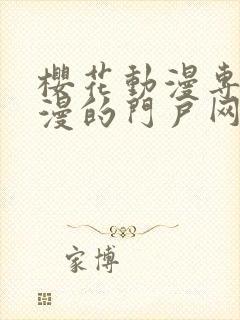 櫻花動漫專
漫的門戶网
家博